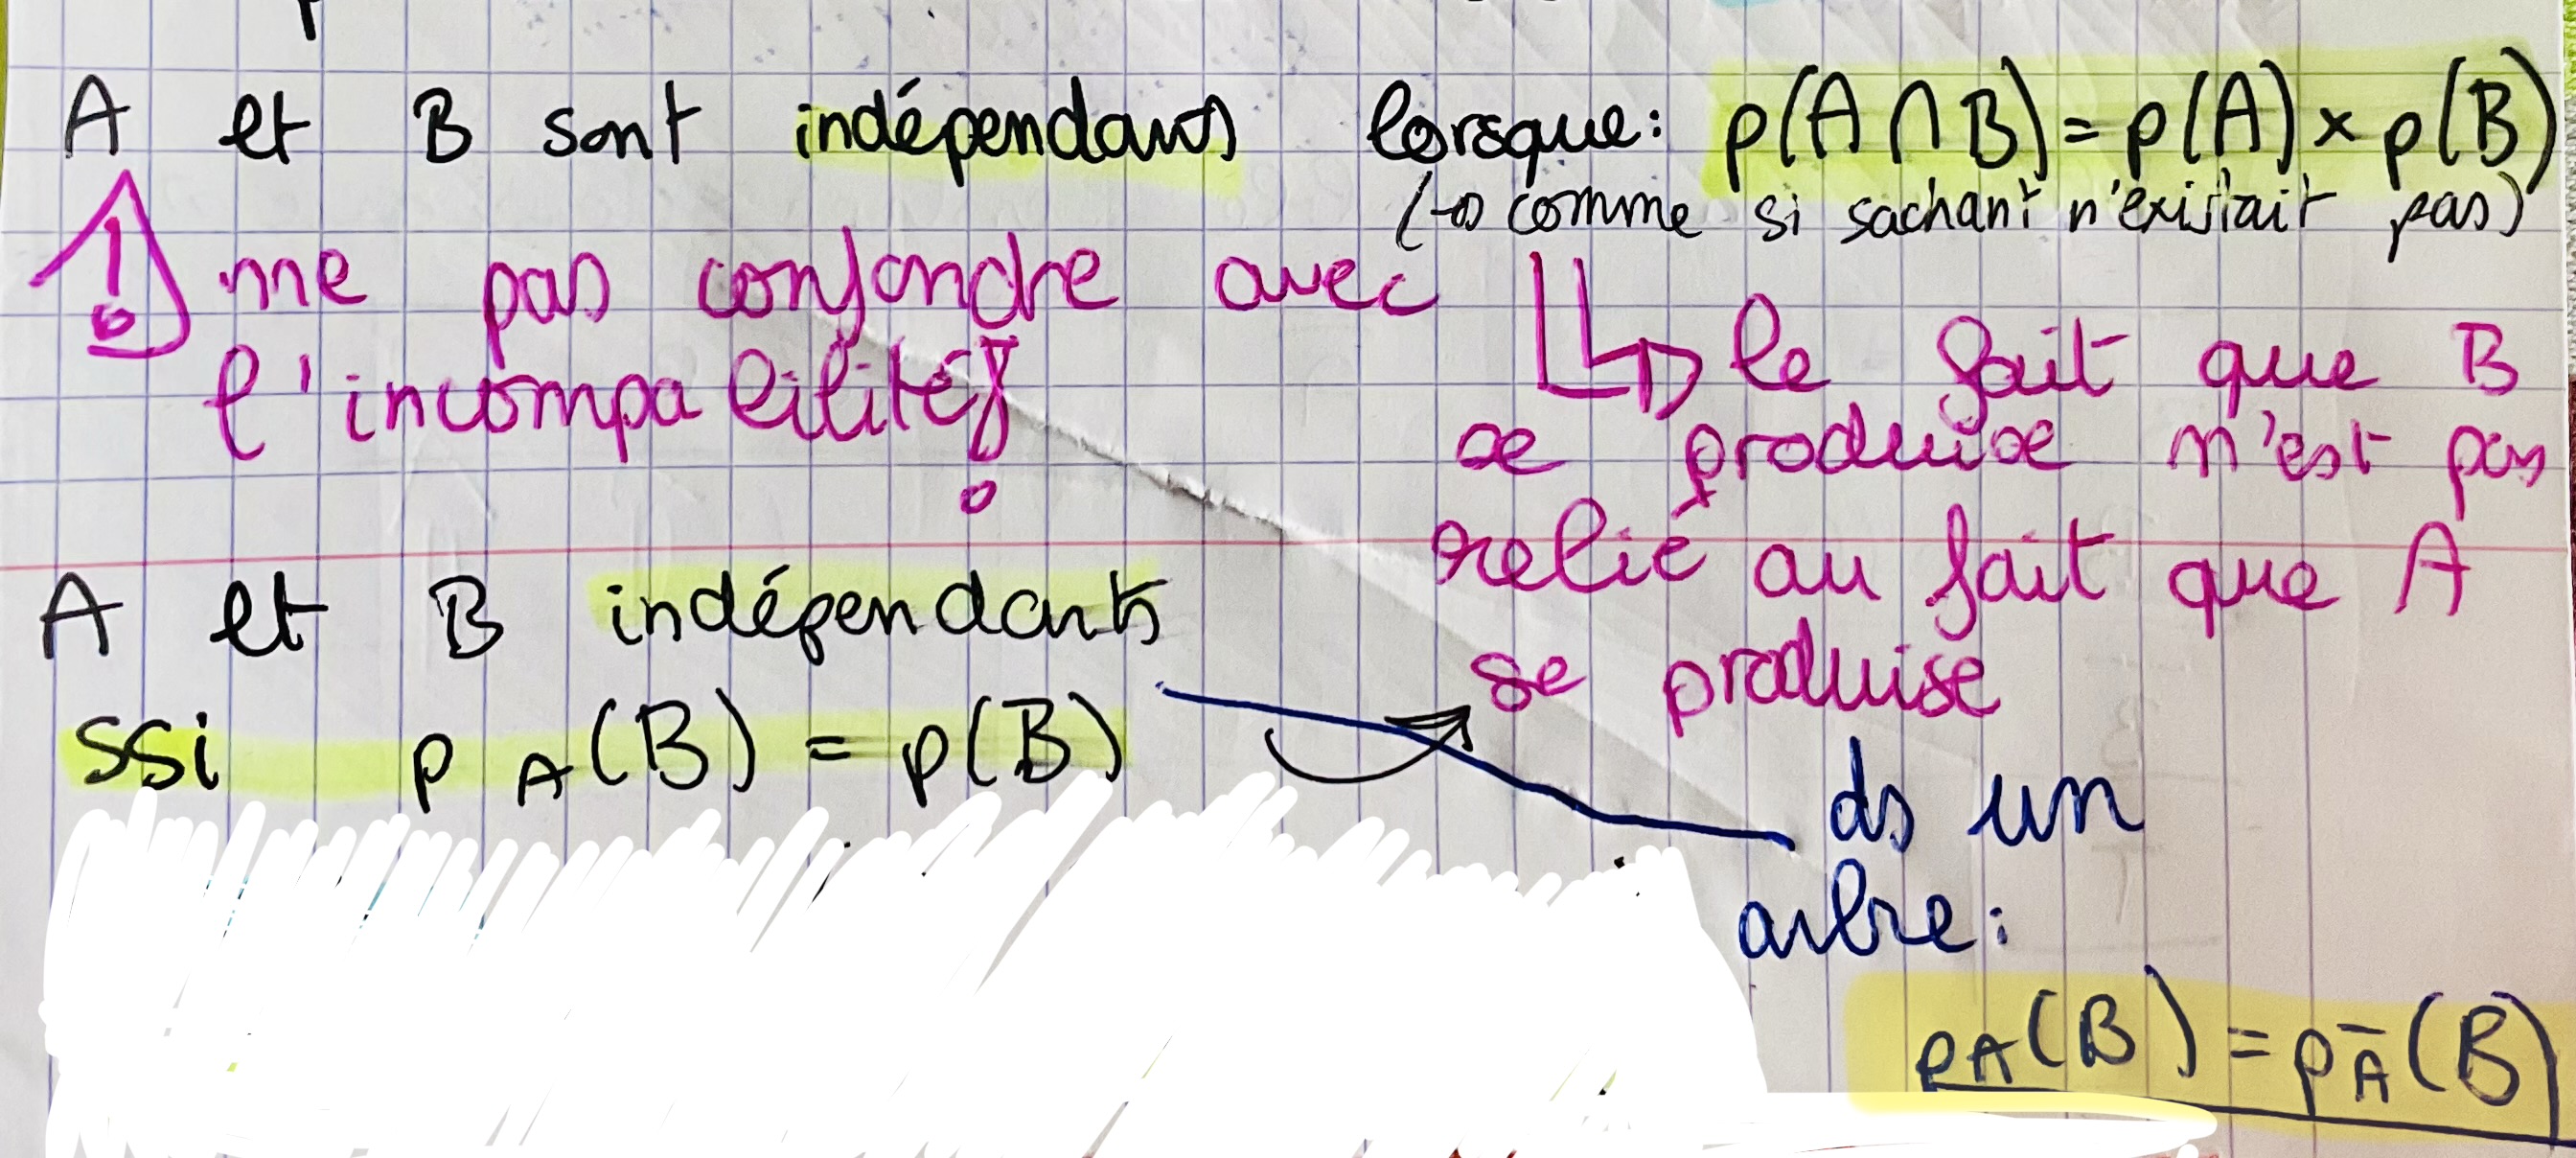 A et B sont indépendants lorsque: p(A∩B)=p(A)×p(B)
(→ comme si sachant n'existait pas)
ne pas confondre avec
l'incompabilité!
le fait que B
se produise n'est pas
relié au fait que A
se produise
A et B indépendants
ssi p_A(B) = p(B)
ds un
arbre:
p_A(B) = p_Ā(B)